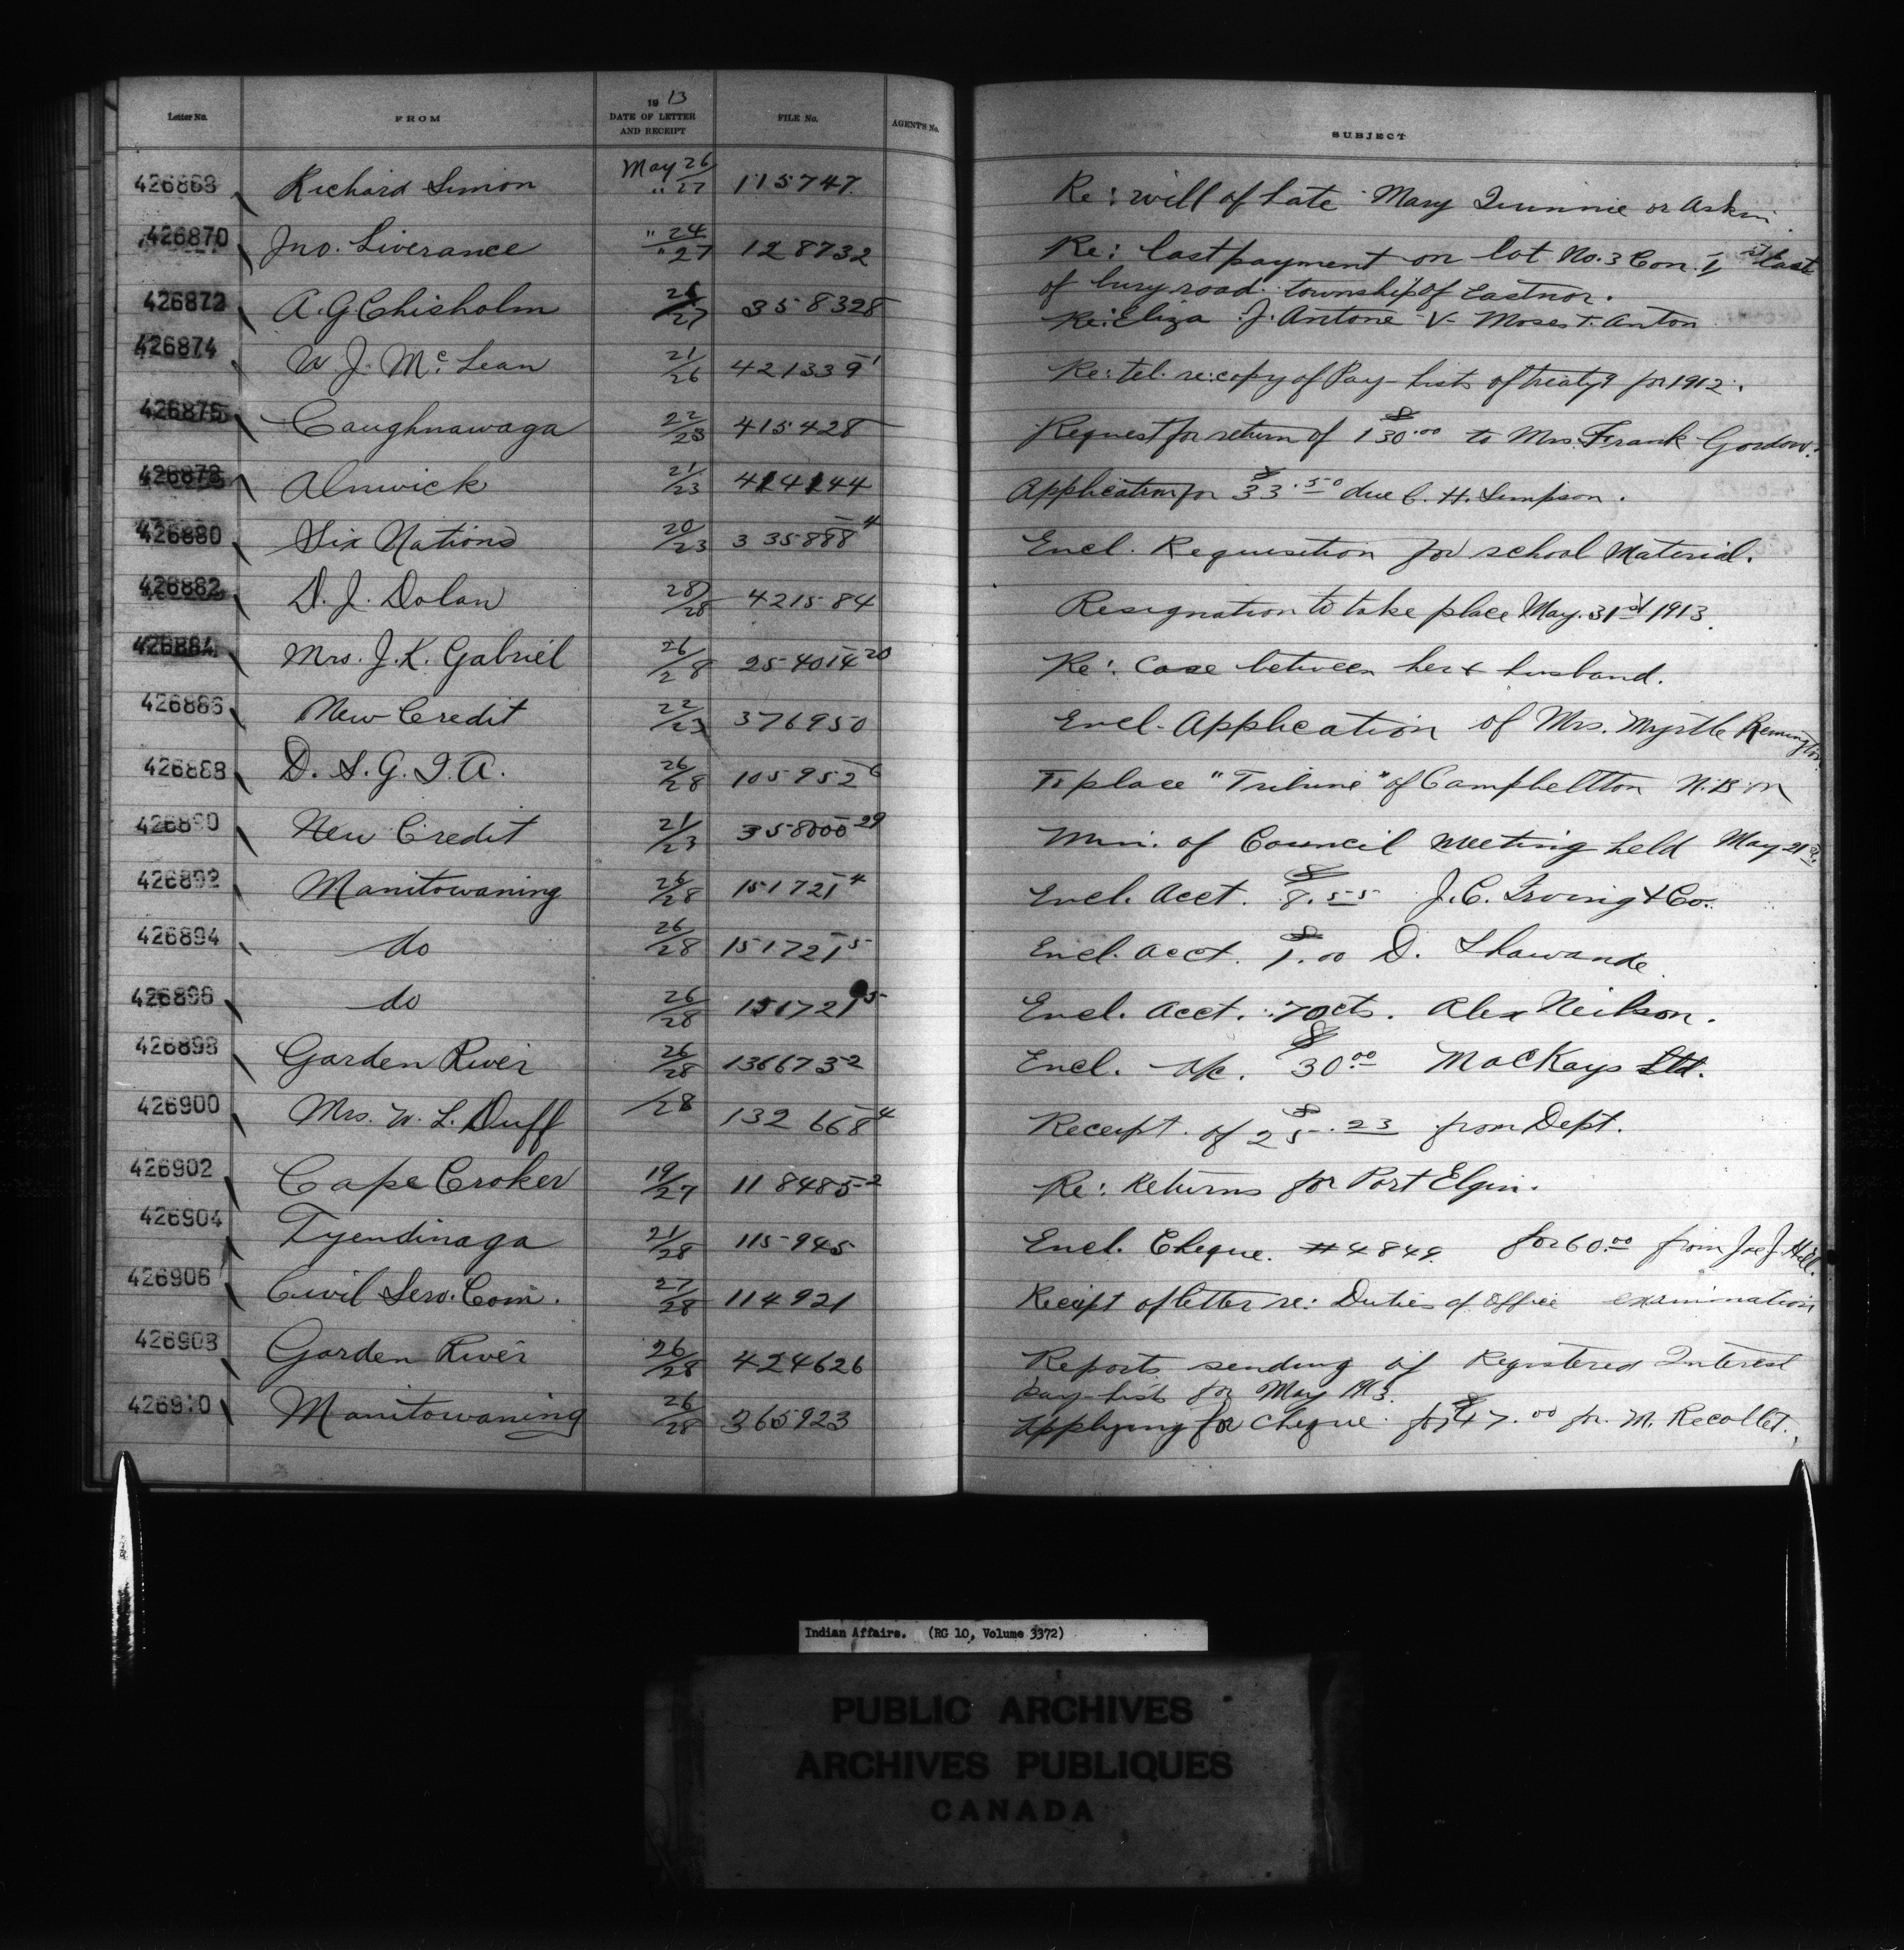 Letter No. FROM 1913 DATE OF LETTER AND RECEIPT FILE No. AGENTS No. SUBJECT
426868 Richard Simon May 26/" 27 115747 Re: will of late Mary Quinnie or Askin
426870 Jno. Liverance " 24/" 27 128732 Re: last payment on lot No. 3 Con. 1st East
of bury road township of Eastnor.
426872 A. G Chisholm 26/27 358328 Re: Eliza J. Antone V- Moses T. Anton
426874 W. J. McLean 21/26 421339-1 Re: tel. re: copy of Pay-lists of treaty 9 for 1912.
426876 Caughnawaga 22/23 415428 Request for return of $130.00 to Mrs. Frank Gordon.
426878 Alnwick 21/23 414144 Application for $33.50 due C. H. Simpson.
426880 Six Nations 20/23 335888-4 Encl. Requisition for school Material.
426882 D. J. Dolan 28/28 421584 Resignation to take place May. 31st 1913.
426884 Mrs. J. K. Gabriel 26/28 254014-20 Re: Case between her & husband.
426886 New Credit 22/23 376950 Encl. Application of Mrs. Myrtle Remington
426888 D. S. G. I. A. 26/28 105952-6 To place "Tribune" of Campbellton N.B. on
426890 New Credit 21/23 358000-29 Min. of Council Meeting held May 21st.
426892 Manitowaning 26/28 151721-4 Encl. Acct. $8.55 J. C. Irving & Co.
426894 do 26/28 151721-5 Encl. Acct. $1.00 D. Shawande
426896 do 26/28 151721-5 Encl. Acct. .70cts. Alex Neilson.
426898 Garden River 26/28 136673-2 Encl. A/c. $30.00 MacKays Ltd.
426900 Mrs. W. L. Duff /28 132668-4 Receipt of $25.23 from Dept.
426902 Cape Croker 19/27 118485-2 Re: Returns for Port Elgin.
426904 Tyendinaga 21/28 115945 Encl. Cheque. #4849 for 60.00 from Joe J. Hill.
426906 Civil Serv. Com. 27/28 114921 Receipt of letter re: Duties of office examination
426908 Garden River 26/28 424626 Reports sending of Registered Interest
pay-lists for May 1913.
426910 Manitowaning 26/28 365923 Applying for cheque for $47.00 for M. Recollet.
Indian Affairs. (RG 10, Volume 3372)
PUBLIC ARCHIVES
ARCHIVES PUBLIQUES
CANADA